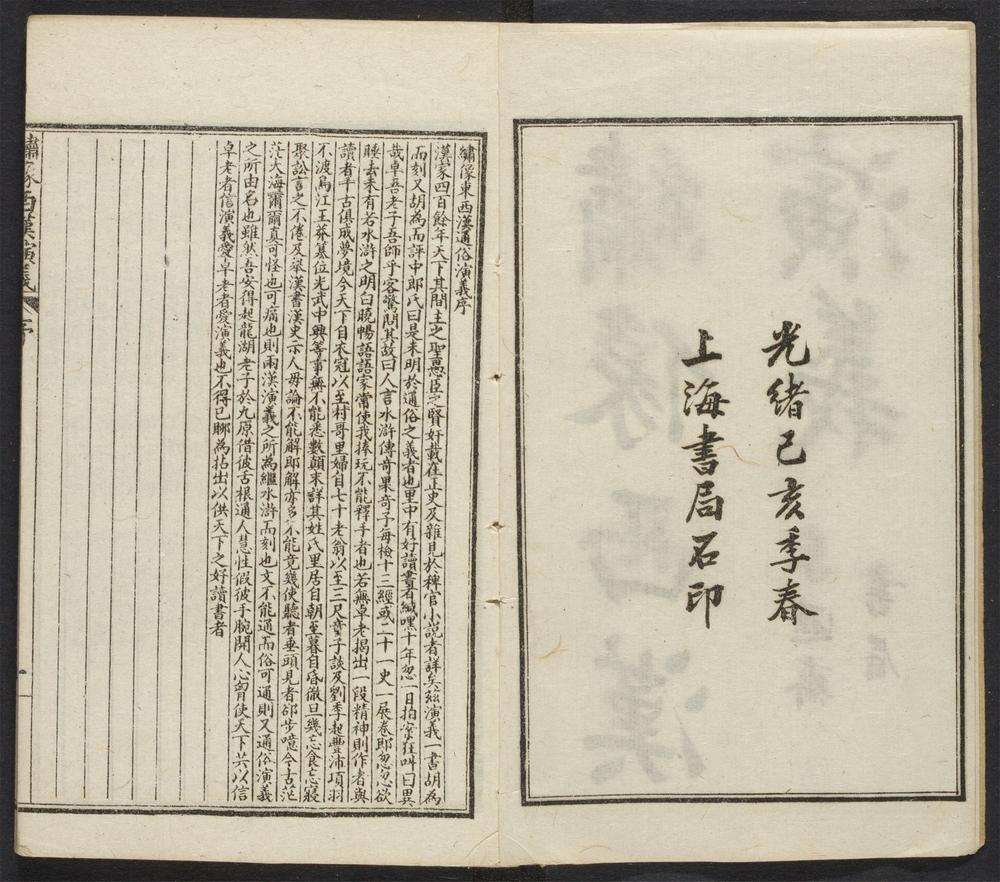 光緒己亥季春
上海書局石印
繡像東西漢通俗演義序
漢家四百餘年天下其間主之聖愚臣之賢奸載在正史及雜見於稗官小說者詳矣茲演義一書胡為
而刻又胡為而評中郎氏曰是未明於通俗之義者也里中有好讀書者緘嘿十年忽一日拍案狂叫曰異
哉卓吾老子吾師乎客驚問其故曰人言水滸傳奇果奇予每檢十三經或二十一史一展卷即忽忽欲
睡去未有若水滸之明白曉暢語語家常使我捧玩不能釋手者也若無卓老揭出一段精神則作者與
讀者千古俱成夢境今天下自衣冠以至村哥里婦自七十老翁以至三尺童子談及劉季起豐沛項羽
不渡烏江王莽篡位光武中興等事無不能悉數顛末詳其姓氏里居自朝至暮自昏徹旦幾忘食忘寢
聚訟言之不倦及舉漢書漢史示人毋論不能解即解亦多不能竟幾使聽者垂頭見者却步噫今古茫
茫大海爾爾真可怪也可痛也則兩漢演義之所為繼水滸而刻也文不能通而俗可通則又通俗演義
之所由名也雖然吾安得起龍湖老子於九原借彼舌根通人慧性假彼手腕開人心胷使天下共以信
卓老者信演義愛卓老者愛演義也不得已聊為拈出以供天下之好讀書者
繡像西漢演義
序
一